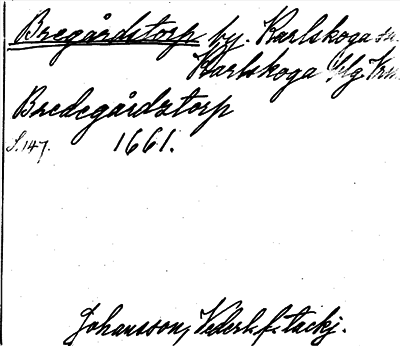 Bregårdstorp by. Karlskoga sn.
Karlskoga
Bredegårdztorp
S. 147. 1661.
Johansson, Nederl. f. tackj.